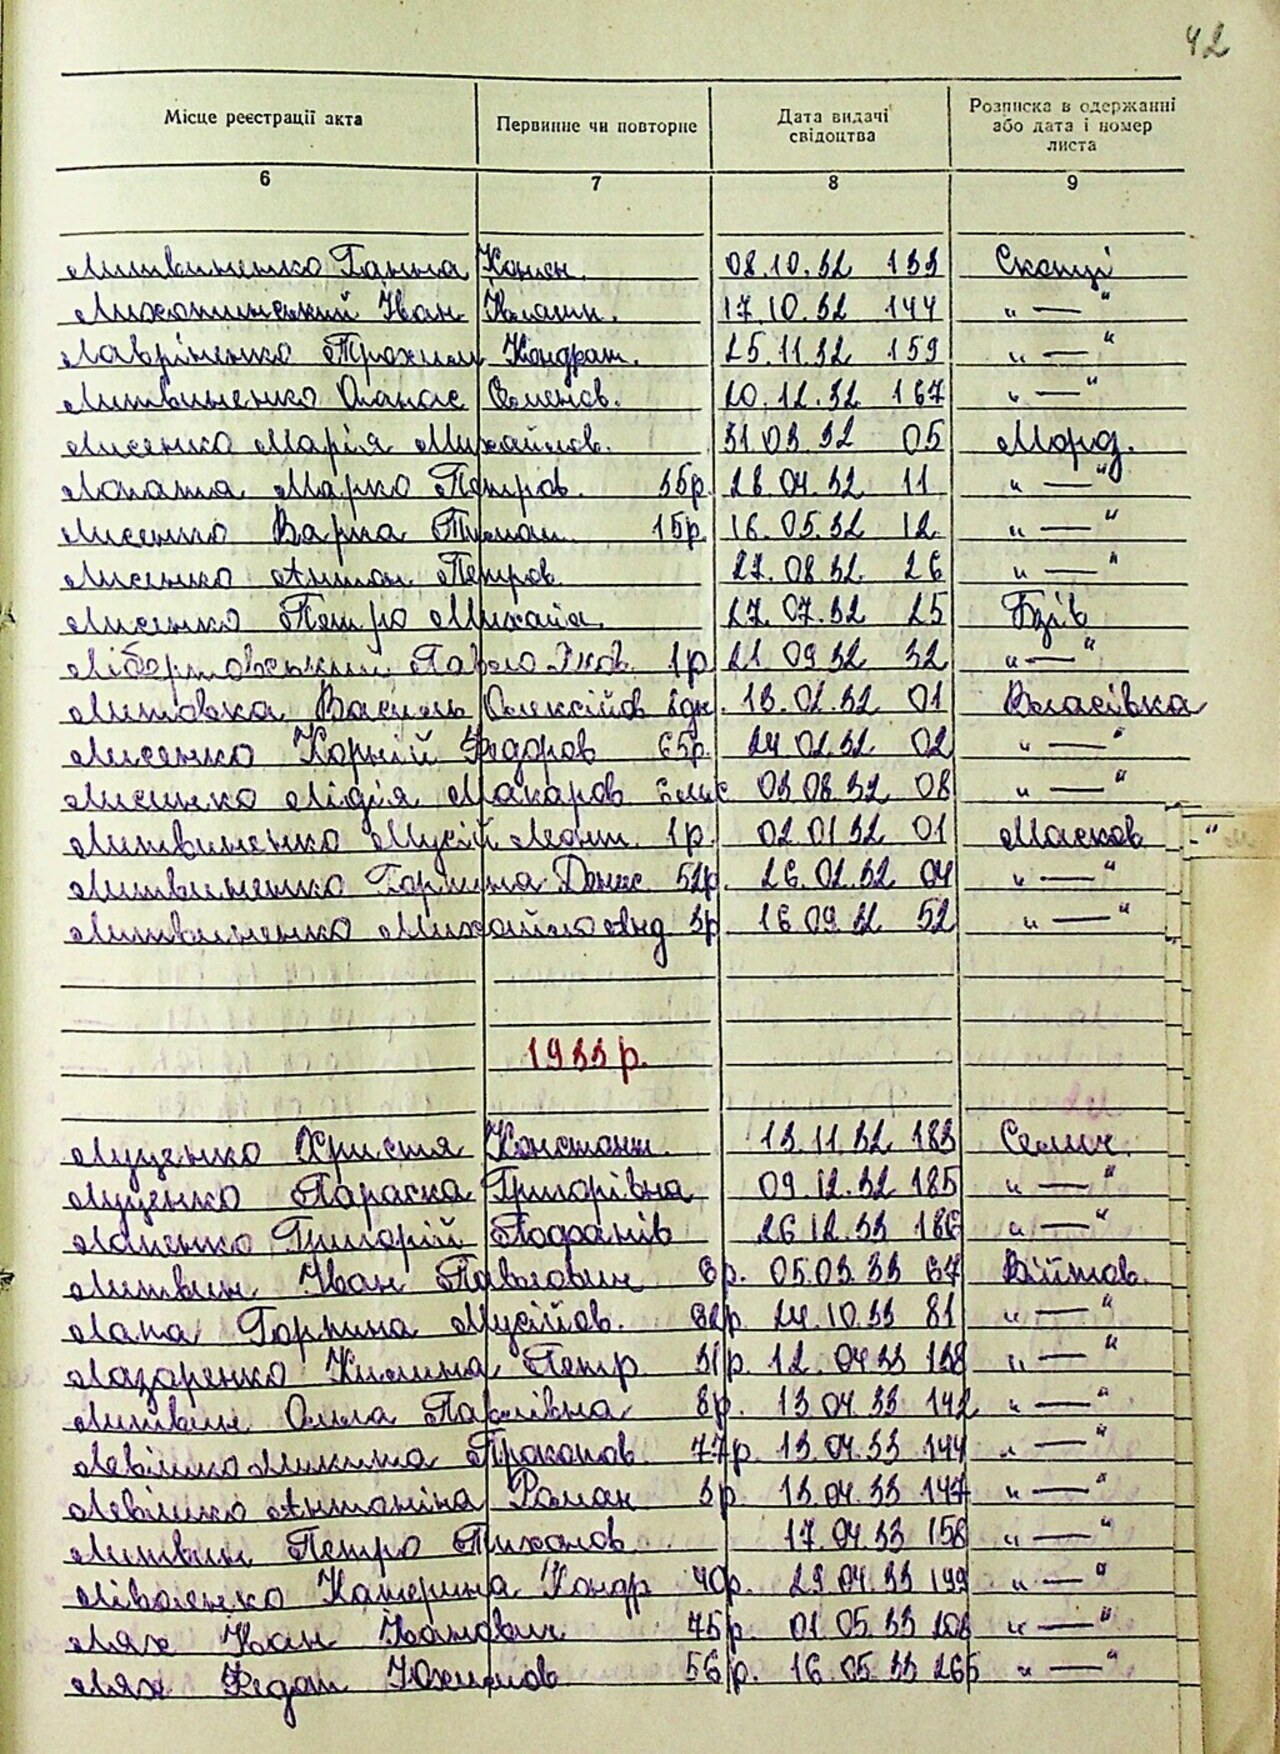 42
Місце реєстрації акта
Первинне чи повторне
Дата видачі свідоцтва
Розписка в одержанні або дата і номер листа
6 7 8 9
Литвиненко Ганна Конон. 08.10.32 133 Скопці
Лихопинський Іван 17.10.32 144 " — "
Лавріненко Трохим Кондрат. 25.11.32 159 " — "
Литвиненко Опанас Семенов. 20.12.32 167 " — "
Лисенко Марія Михайлов. 31.03.32 05 Морд.
Лопата Марко Петров. 35р. 28.04.32 11 " — "
Лисенко Варка Тимош. 15р. 16.05.32 12 " — "
Лисенко Антон Петров. 27.08.32 26 " — "
Лисенко Петро Михайл. 27.07.32 25 Бзів
Павло Яков. 1р. 21.09.32 32 " — "
Литовка Василь Олексійов 2дн. 13.02.32 01 Власівка
Лисенко Корній Федоров 65р. 24.02.32 02 " — "
Лисенко Лідія Макаров 03.08.32 08 " — "
Литвиненко Мусій Леонт. 1р. 02.01.32 01 Масков. - "
Литвиненко Горпина Денис 52р. 26.02.32 04 " — "
Литвиненко Михайло Анд 3р 16.09.32 52 " — "
1933 р.
Луценко Христя Констант. 13.11.32 183 Селич.
Луценко Параска Григорівна 09.12.32 185 " — "
Лапенко Григорій 26.12.33 186 " — "
Литвин Іван Павлович 6р. 05.03.33 67 Війтов.
Лапа Горпина Мусійов. 62р. 24.10.33 81 " — "
Лазаренко Килина Петр. 31р. 12.04.33 138 " — "
Литвин Ольга Павлівна 8р. 13.04.33 142 " — "
Левішко Микита Прокопов 77р. 13.04.33 144 " — "
Левішко Антоніна Роман 3р. 13.04.33 147 " — "
Литвин Петро Тихонов 17.04.33 158 " — "
Катерина Кондр 40р. 29.04.33 199 " — "
Лях Іван Іванович 75р. 01.05.33 208 " — "
Лях Федот Юхимов 56р. 16.05.33 265 " — "